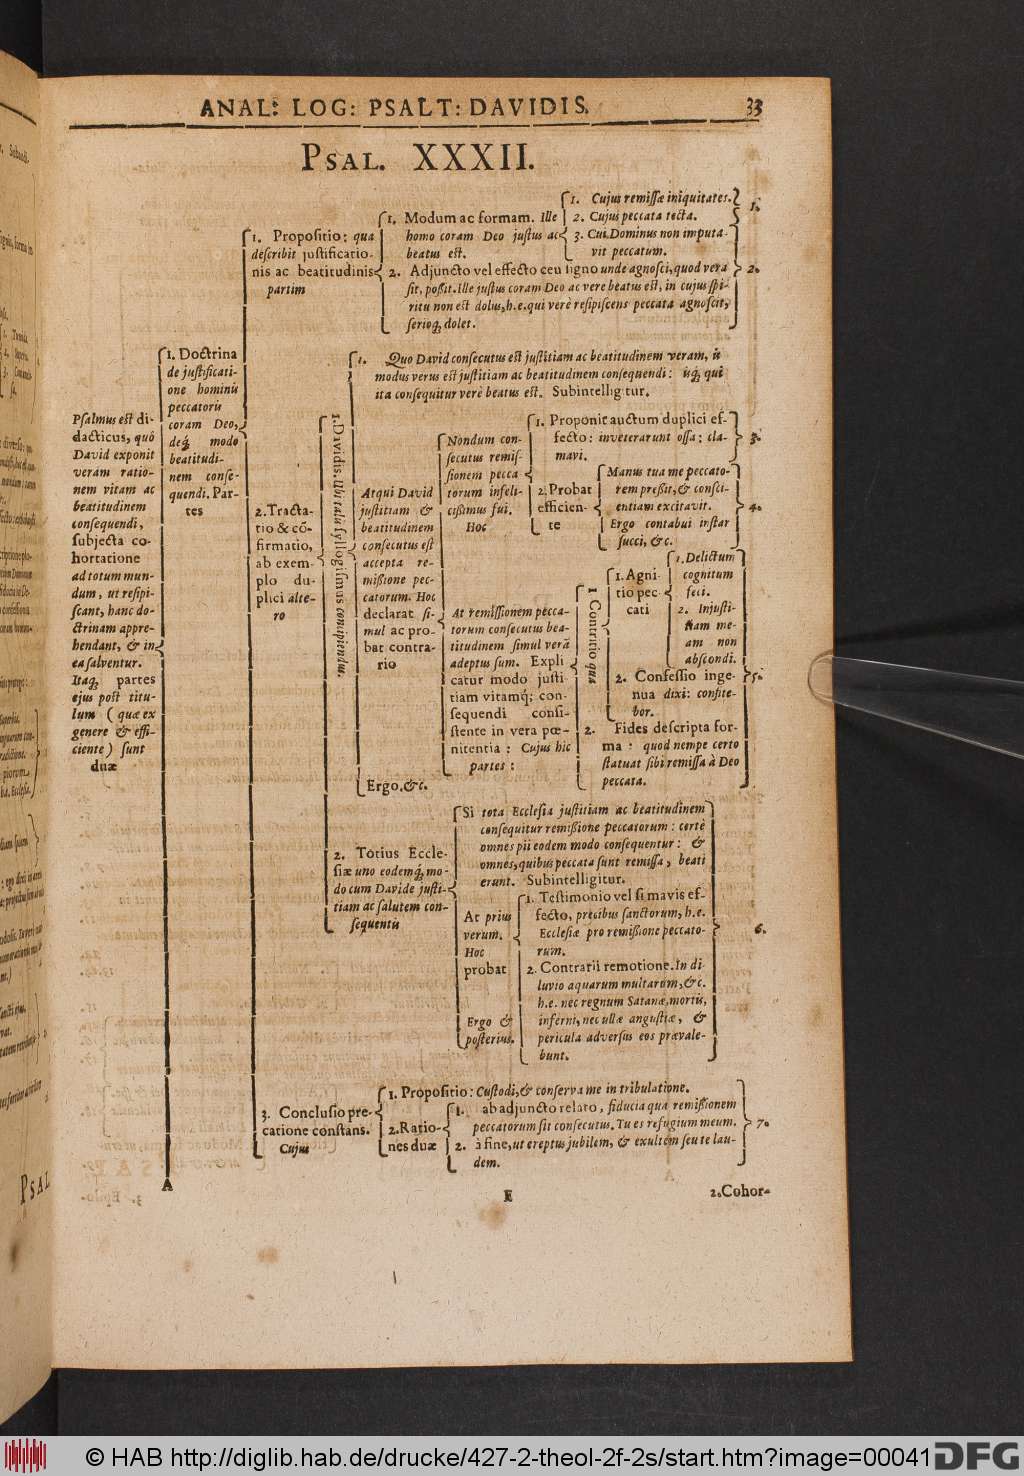 ANAL: LOG: PSALT: DAVIDIS. 33
PSAL. XXXII.
Psalmus est di-
dacticus, quo
David exponit
veram ratio-
nem vitam ac
beatitudinem
consequendi,
subjecta co-
hortatione
ad totum mun-
dum, ut resipi-
scant, hanc do-
ctrinam appre-
hendant, & in
ea salventur.
Itaq; partes
ejus post titu-
lum (quæ ex
genere & effi-
ciente) sunt
duæ
1. Doctrina
de justificati-
one hominis
peccatoris
coram Deo,
deq; modo
beatitudi-
nem conse-
quendi. Par-
tes
1. Propositio: qua
describit justificatio-
nis ac beatitudinis
partim
1. Modum ac formam. Ille
homo coram Deo justus ac
beatus est.
1. Cujus remissæ iniquitates.
2. Cujus peccata tecta.
3. Cui Dominus non imputa-
vit peccatum.
1.
2. Adjuncto vel effecto ceu signo unde agnosci, quod vera
sit, possit. Ille justus coram Deo ac vere beatus est, in cujus spi-
ritu non est dolus, h.e. qui verè resipiscens peccata agnoscit,
serioq; dolet.
2.
2. Tracta-
tio & cō-
firmatio,
ab exem-
plo du-
plici alte-
ro
1. Davidis. Ubi talis syllogismus concipiendus.
1. Quo David consecutus est justitiam ac beatitudinem veram, is
modus verus est justitiam ac beatitudinem consequendi: isq; qui
ita consequitur verè beatus est. Subintelligitur.
Atqui David
justitiam &
beatitudinem
consecutus est
accepta re-
missione pec-
catorum. Hoc
declarat si-
mul ac pro-
bat contra-
rio
Nondum con-
secutus remis-
sionem pecca
torum infeli-
cissimus fui.
Hoc
1. Proponit auctum duplici ef-
fecto: inveterarunt ossa; cla-
mavi.
3.
2. Probat
efficien-
te
Manus tua me peccato-
rem pressit, & consci-
entiam excitavit.
Ergo contabui instar
succi, &c.
4.
At remissionem pecca-
torum consecutus bea-
titudinem simul verā
adeptus sum. Expli
catur modo justi-
tiam vitamq; con-
sequendi consi-
stente in vera pœ-
nitentia: Cujus hic
partes:
1 Contritio qua
1. Agni-
tio pec-
cati
1. Delictum
cognitum
feci.
2. Injusti-
tiam me-
am non
abscondi.
2. Confessio inge-
nua dixi: confite-
bor.
2. Fides descripta for-
ma: quod nempe certo
statuat sibi remissa à Deo
peccata.
5.
Ergo, &c.
2. Totius Eccle-
siæ uno eodemq; mo-
do cum Davide justi-
tiam ac salutem con-
sequentis
Si tota Ecclesia justitiam ac beatitudinem
consequitur remissione peccatorum: certè
omnes pii eodem modo consequentur: &
omnes, quibus peccata sunt remissa, beati
erunt. Subintelligitur.
At prius
verum.
Hoc
probat
1. Testimonio vel si mavis ef-
fecto, precibus sanctorum, h.e.
Ecclesiæ pro remissione peccato-
rum.
2. Contrarii remotione. In di-
luvio aquarum multarum, &c.
h.e. nec regnum Satanæ, mortis,
inferni, nec ullæ angustiæ, &
pericula adversus eos prævale-
bunt.
6.
Ergo &
posterius.
3. Conclusio pre-
catione constans.
Cujus
1. Propositio: Custodi, & conserva me in tribulatione.
2. Ratio-
nes duæ
1. ab adjuncto relato, fiducia qua remissionem
peccatorum sit consecutus. Tu es refugium meum.
2. à fine, ut ereptus jubilem, & exultem seu te lau-
dem.
7.
A
E
2. Cohor-
© HAB http://diglib.hab.de/drucke/427-2-theol-2f-2s/start.htm?image=00041
DFG